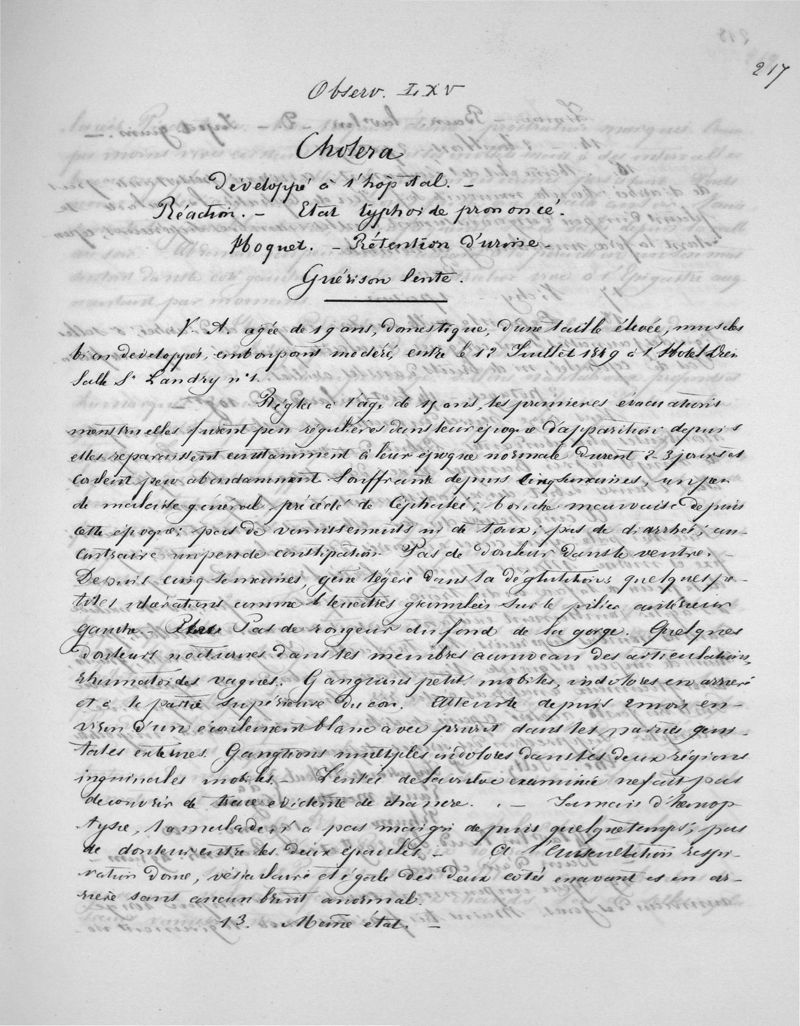 217
Observ. LXV
Cholera
Développé à l'hôpital. -
Réaction. - Etat typhoïde prononcé.
Hoquet. - Rétention d'urine -
Guérison lente.
V. A. agée de 19 ans, domestique, d'une taille élevée, muscles
bien developpés, embonpoint modéré, entre le 12 Juillet 1849 à l'Hotel Dieu
Salle St Landry n° 1.
Réglée à l'age de 15 ans, les premieres évacuations
menstruelles furent peu régulieres dans leur époque d'apparition depuis
elles reparaissent constamment à leur époque normale durent 2 3 jours et
coulent peu abondamment. Souffrante depuis cinq semaines, un peu
de malaise général, précédé de Céphalée; bouche mauvaise depuis
cette époque; pas de vomissements ni de toux; pas de diarrhée; au
contraire un peu de constipation. Pas de douleur dans le ventre. -
Depuis cinq semaines, gêne légère dans la déglutition, quelques pe-
tites ulcérations comme grumelées sur le pilier antérieur
gauche - Pas de rougeur du fond de la gorge. Quelques
douleurs nocturnes dans les membres au niveau des articulations,
rhumatoïdes vagues. Ganglions petits mobiles, indolores en arrière
et à la partie supérieure du cou. Atteinte depuis 2 mois en-
viron d'un écoulement blanc avec prurit dans les parties geni-
tales externes. Ganglions multiples indolores dans les deux régions
inguinales mobiles - L'entrée de la vulve examinée ne fait pas
decouvrir de trace evidente de chancre. . - Jamais d'hémop
tysie, la malade n'a pas maigri depuis quelque temps, pas
de douleur entre les deux épaules - A l'Auscultation respi-
ration douce, vésiculaire et égale des deux cotés en avant et en ar-
rière sans aucun bruit anormal.
13. Même état. -